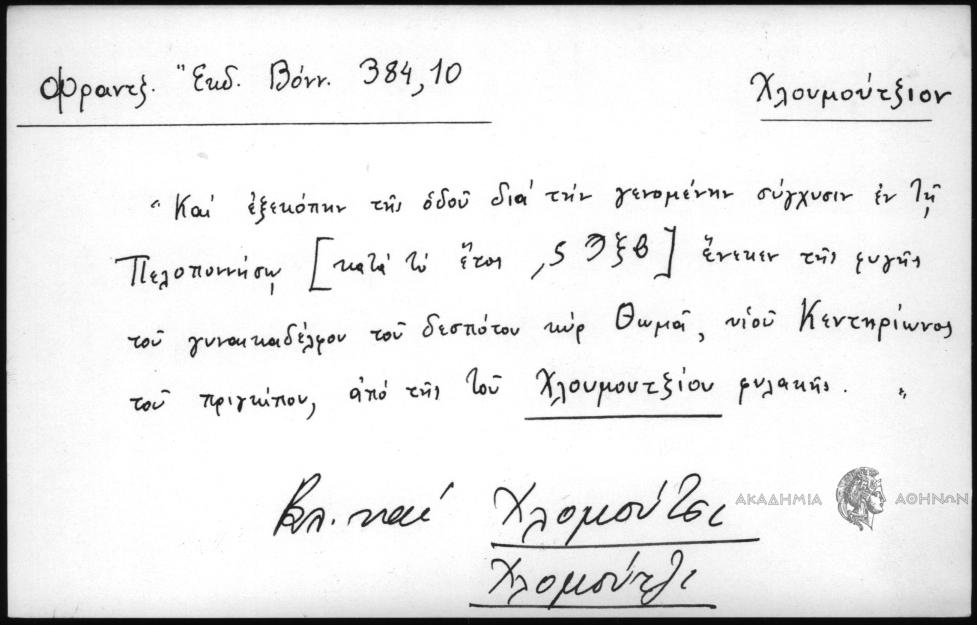 Φραντζ. "Εκδ. Βόνν. 384,10
Χλουμούτζιον
"Καί ἐξεκόπην τῆς ὁδοῦ διά τήν γενομένην σύγχυσιν ἐν τῇ
Πελοποννήσῳ [κατά τό ἔτος ,ϛϠξβ] ἕνεκεν τῆς φυγῆς
τοῦ γυναικαδέλφου τοῦ δεσπότου κύρ Θωμᾶ, υἱοῦ Κεντηρίωνος
τοῦ πριγκίπου, ἀπό τῆς τοῦ Χλουμουτζίου φυλακῆς. "
Βλ. καί Χλομούτσι
Χλομούτζι
ΑΚΑΔΗΜΙΑ ΑΘΗΝΩΝ